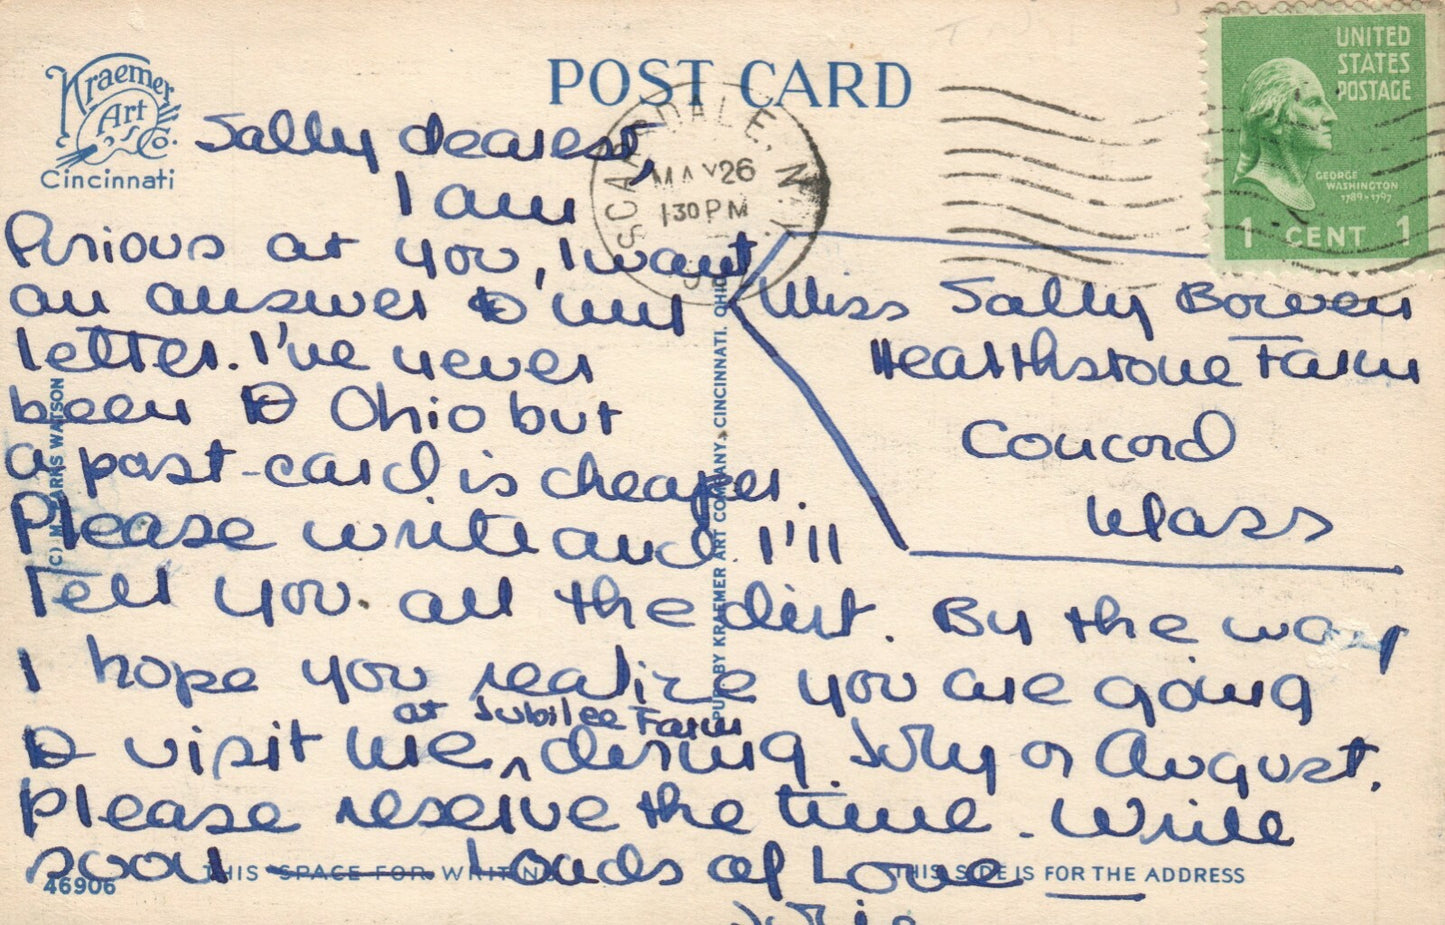 POST CARD
Kraemer
Art
Co.
Cincinnati
SCARSDALE, N.Y.
MAY 26
1 30 PM
UNITED
STATES
POSTAGE
GEORGE
WASHINGTON
1789-1797
1 CENT 1
Sally dearest,
I am
furious at you, I want
an answer to my
letter. I've never
been to Ohio but
a post-card is cheaper.
Please write and I'll
tell you all the dirt. By the way
I hope you realize you are going
at Jubilee Farm
to visit me, ^ during July or August.
Please reserve the time. Write
soon — Loads of Love
Miss Sally Bowen
Hearthstone Farm
Concord
Mass
(C) M. MARKS WATSON
PUB. BY KRAEMER ART COMPANY, CINCINNATI, OHIO
46906
THIS SPACE FOR WRITING
THIS SIDE IS FOR THE ADDRESS